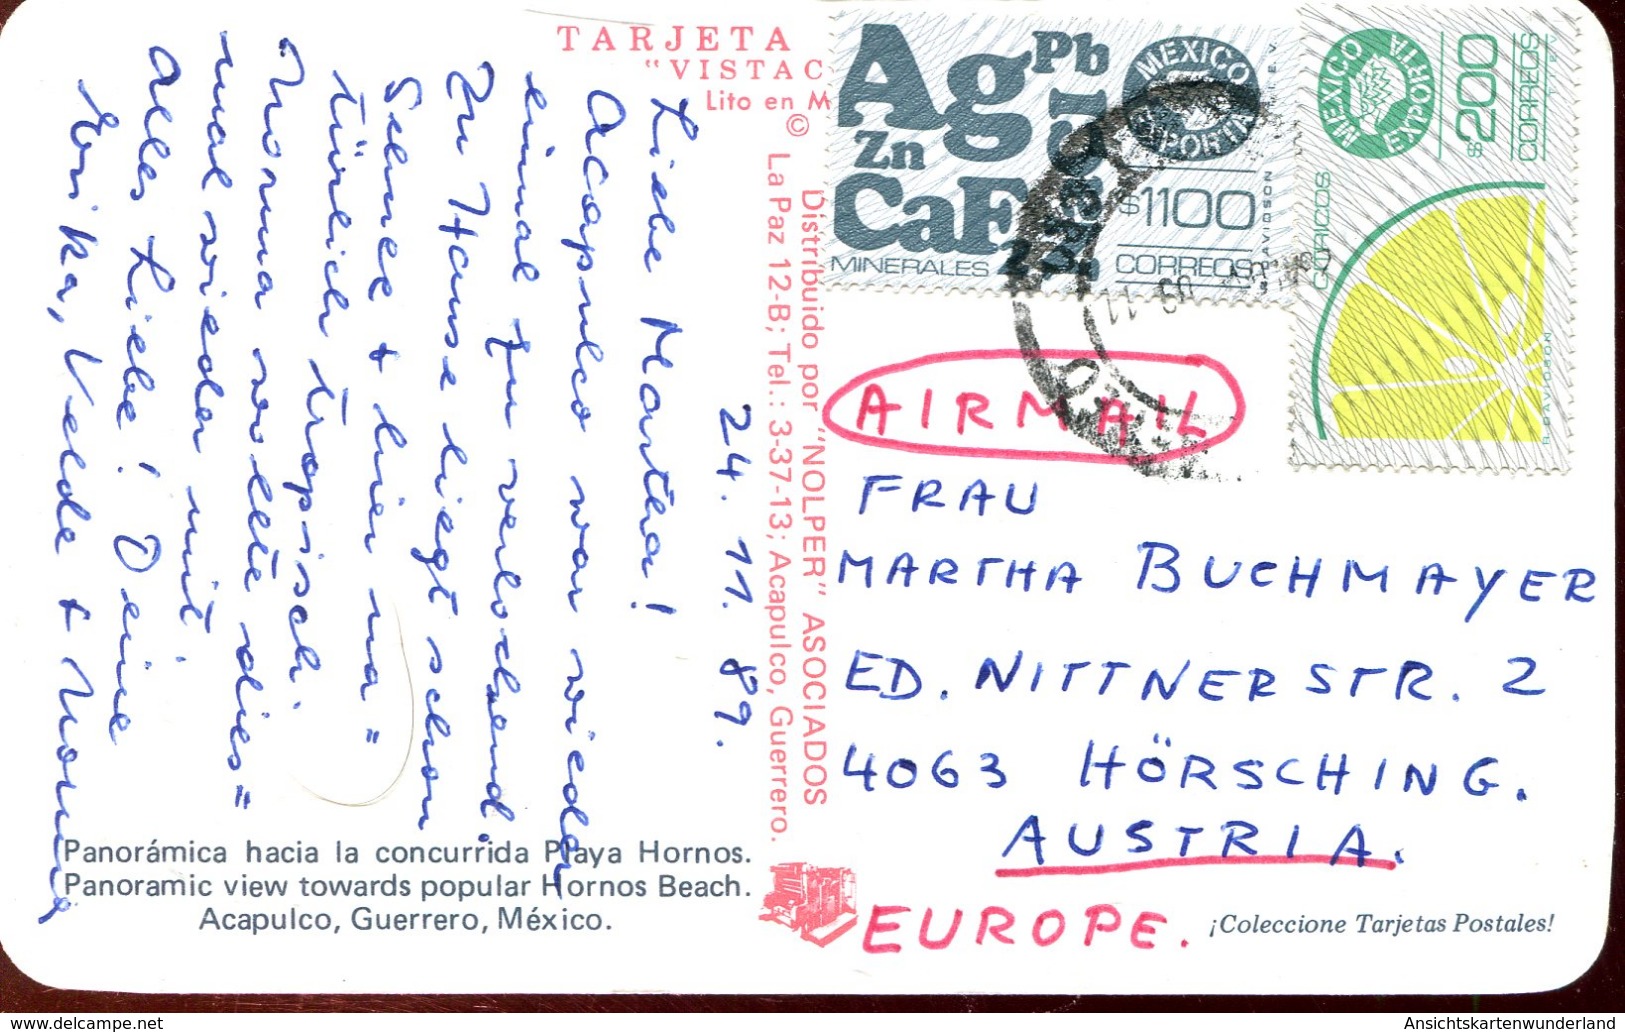 TARJETA
"VISTAC
Lito en M
© Distribuido por "NOLPER" ASOCIADOS
La Paz 12-B; Tel.: 3-37-13; Acapulco, Guerrero.
24. 11. 89.
Liebe Martha!
Acapulco war wieder
einmal zu verlockend.
Zu Hause liegt schon
Schnee + hier na=
türlich tropisch.
Norma wollte dies=
mal wieder mit
Alles Liebe! Deine
Erika, Velde + Norma
Panorámica hacia la concurrida Playa Hornos.
Panoramic view towards popular Hornos Beach.
Acapulco, Guerrero, México.
Ag Pb
Zn
CaF
MINERALES
MEXICO
EXPORTA
$1100
CORREOS
MEXICO
EXPORTA
$200
CORREOS
CITRICOS
AIRMAIL
FRAU
MARTHA BUCHMAYER
ED. NITTNERSTR. 2
4063 HÖRSCHING.
AUSTRIA.
EUROPE.
¡Coleccione Tarjetas Postales!
Ansichtskartenwunderland